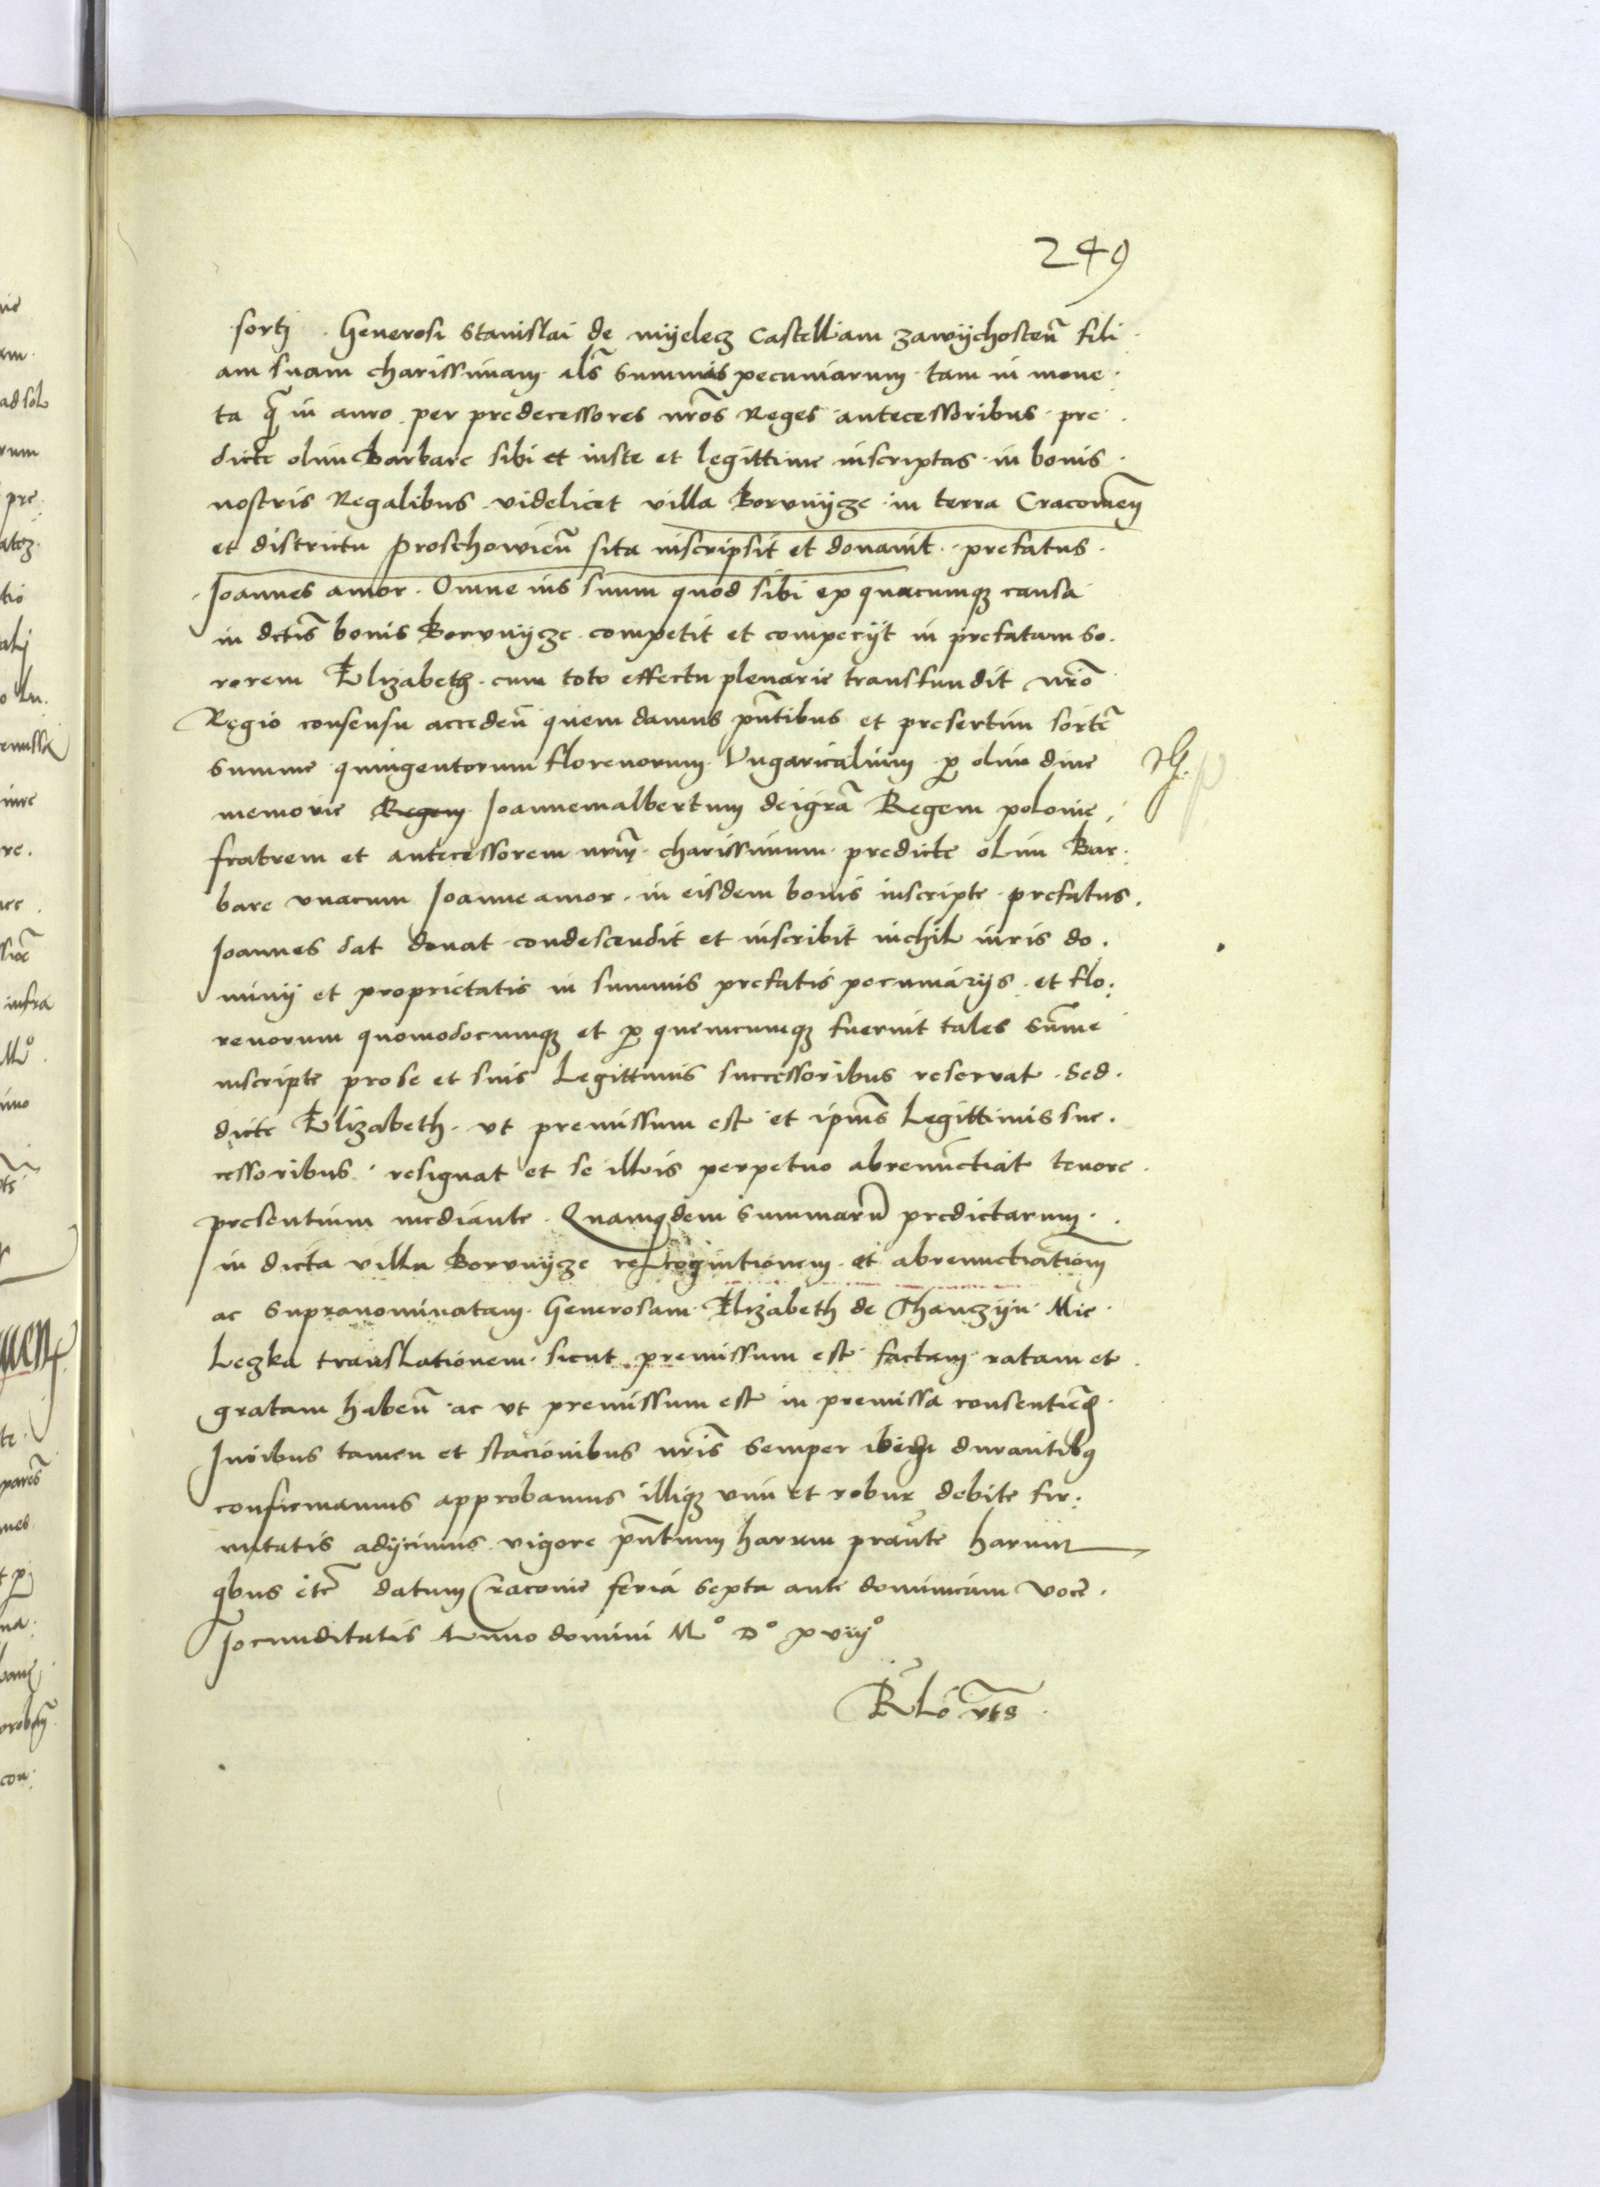 249
sortj Generosi Stanislai de myelecz Castellam zawychosteñ fili
am suam charissimam als summas pecuniarum tam in mone
ta q̃ in auro per predecessores nros Reges antecessoribus pre
dicte olim Barbare sibi et iuste et legittime inscriptas in bonis
nostris Regalibus videlicet villa Borvnycze in terra Cracovien
et districtu proschowien̄ sita inscripsit et donavit prefatus
Joannes amor Omne ius suum quod sibi ex quacumqz causa
in dctis bonis Borvnycze competit et competijt in prefatam so
rorem Elizabeth cum toto effectu plenarie transfundit nro
Regio consensu acceden̄ quem damus pñtibus et presertim sorte
summe quingentorum florenorum Vngaricalium p olim dive
memorie Regem Joannemalbertum dei gra Regem polonie
fratrem et antecessorem nrm charissimum predicte olim Bar
bare vnacum Joanne amor in eisdem bonis inscripte prefatus
Joannes dat donat condescendit et inscribit nichil iuris do
minij et proprietatis in summis prefatis pecuniarijs et flo
renorum quomodocumqz et p quemcumqz fuerint tales sum̄e
inscripte pro se et suis Legittimis successoribus reservat Sed
dicte Elizabeth vt premissum est et ipius Legittimis suc
cessoribus resignat et se illis perpetuo abrenunctiat tenore
presentium mediante Quamqdem summarū predictarum
in dicta villa Borvnycze recognitionem et abrenuctiationem
ac supranominatam Generosam Elizabeth de Thanczyn Mie
Leczka translationem sicut premissum est factam ratam et
gratam haben̄ ac vt premissum est in premissa consentien
Iuribus tamen et stacionibus nris semper ibidem durantibus
confirmamus approbamus illiqz vim et robur debite fir
mitatis adijcimus vigore pñtium harum
qbus etc datum Cracovie feria sexta ante dominicam voce
Jocunditatis Anno domini M° D° xviij°